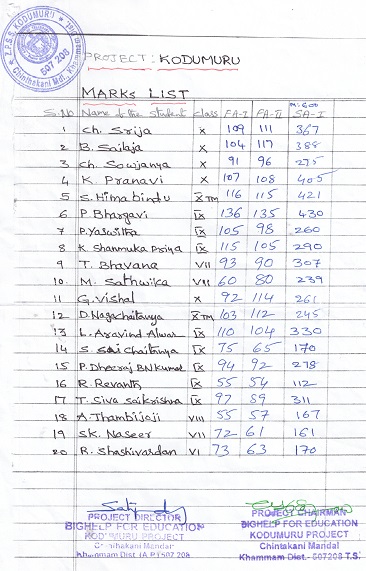 Z.P.S.S. KODUMURU
507 208
Chintakani Mdl., Khammam
PROJECT : KODUMURU
MARKs LIST
M:600
S.No Name of the student class FA-I FA-II SA-I
1 Ch. Srija X 109 111 367
2 B. Sailaja X 104 117 388
3 Ch. Sowjanya X 91 96 275
4 K. Pranavi X 107 108 405
5 S. Himabindu X TM 116 115 421
6 P. Bhargavi IX 136 135 430
7 P. Yaswitha IX 105 98 260
8 K. Shanmuka Priya IX 115 105 290
9 T. Bhavana VII 93 90 307
10. M. Sathwika VII 60 80 239
11 G. Vishal X 92 114 261
12 D. Nagachaitanya X TM 103 112 245
13 L. Aravind Alwar IX 110 104 330
14 S. Sai Chaitanya IX 75 65 170
15 P. Dheeraj B.N Kumar IX 94 92 278
16 R. Revanth IX 55 54 112
17 T. Siva Saikrishna IX 97 89 311
18 A. Thambiji VIII 55 57 167
19 SK. Naseer VII 72 61 161
20 R. Shashivardan VI 73 63 170
PROJECT DIRECTOR
BIGHELP FOR EDUCATION
KODUMURU PROJECT
Chintakani Mandal
Khammam Dist. (A.P) 507 208
PROJECT CHAIRMAN
BIGHELP FOR EDUCATION
KODUMURU PROJECT
Chintakani Mandal
Khammam Dist.- 507208 T.S.